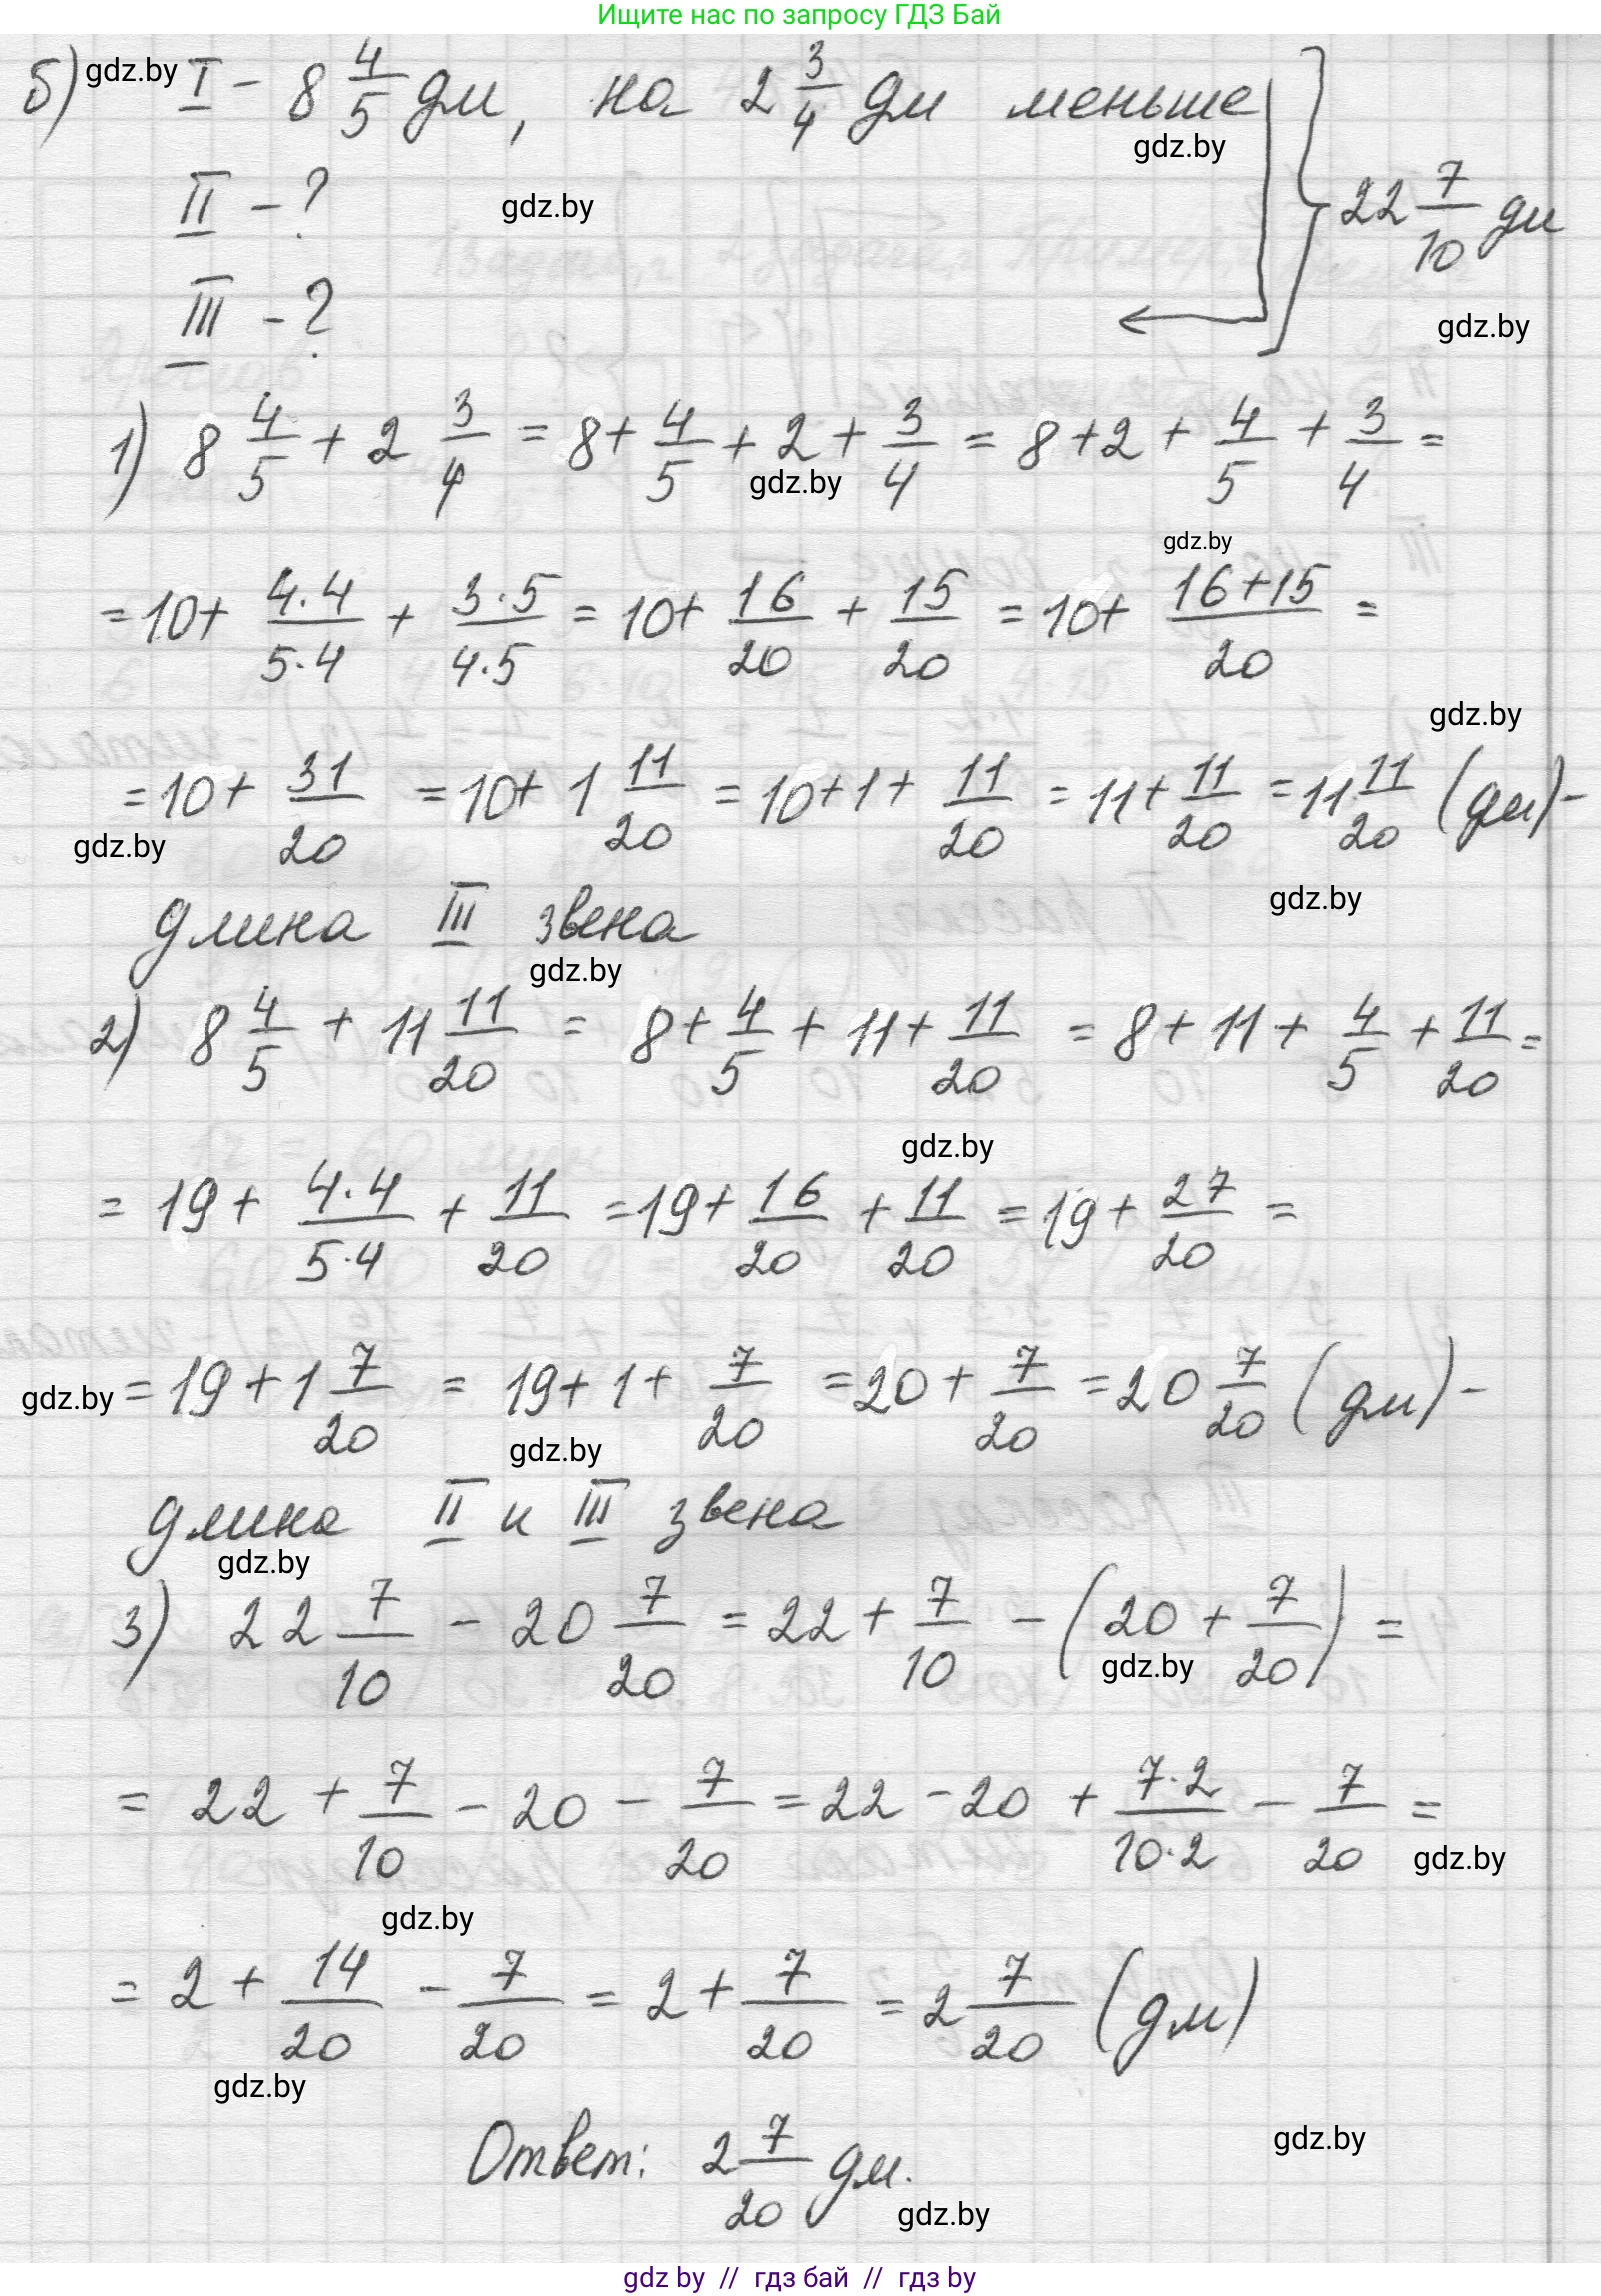 Ищите нас по запросу ГДЗ Бай
б) gdz.by I - 8 4/5 дм, на 2 3/4 дм меньше
gdz.by
II - ? gdz.by
22 7/10 дм
III - ?
gdz.by
1) 8 4/5 + 2 3/4 = 8 + 4/5 + 2 + 3/4 = 8 + 2 + 4/5 + 3/4 =
gdz.by
gdz.by
= 10 + 4·4/5·4 + 3·5/4·5 = 10 + 16/20 + 15/20 = 10 + 16+15/20 =
gdz.by
= 10 + 31/20 = 10 + 1 11/20 = 10 + 1 + 11/20 = 11 + 11/20 = 11 11/20 (дм) -
gdz.by
gdz.by
длина III звена
gdz.by
2) 8 4/5 + 11 11/20 = 8 + 4/5 + 11 + 11/20 = 8 + 11 + 4/5 + 11/20 =
gdz.by
= 19 + 4·4/5·4 + 11/20 = 19 + 16/20 + 11/20 = 19 + 27/20 =
gdz.by = 19 + 1 7/20 = 19 + 1 + 7/20 = 20 + 7/20 = 20 7/20 (дм) -
gdz.by
длина II и III звена
gdz.by
3) 22 7/10 - 20 7/20 = 22 + 7/10 - (20 + 7/20) =
gdz.by
= 22 + 7/10 - 20 - 7/20 = 22 - 20 + 7·2/10·2 - 7/20 =
gdz.by
gdz.by
= 2 + 14/20 - 7/20 = 2 + 7/20 = 2 7/20 (дм)
gdz.by
Ответ: 2 7/20 дм.
gdz.by
gdz.by
gdz by // гдз бай // гдз by